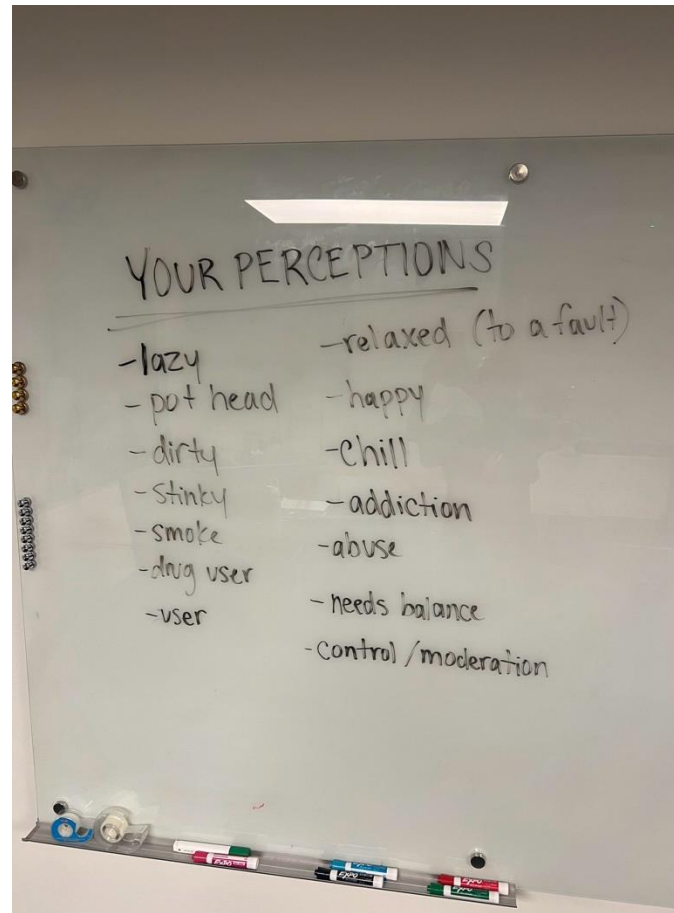 YOUR PERCEPTIONS
-lazy
- pot head
- dirty
- stinky
- smoke
- drug user
- user
-relaxed (to a fault)
- happy
-chill
- addiction
-abuse
- needs balance
-control/moderation
EXPO
EXPO
EXPO
EXPO